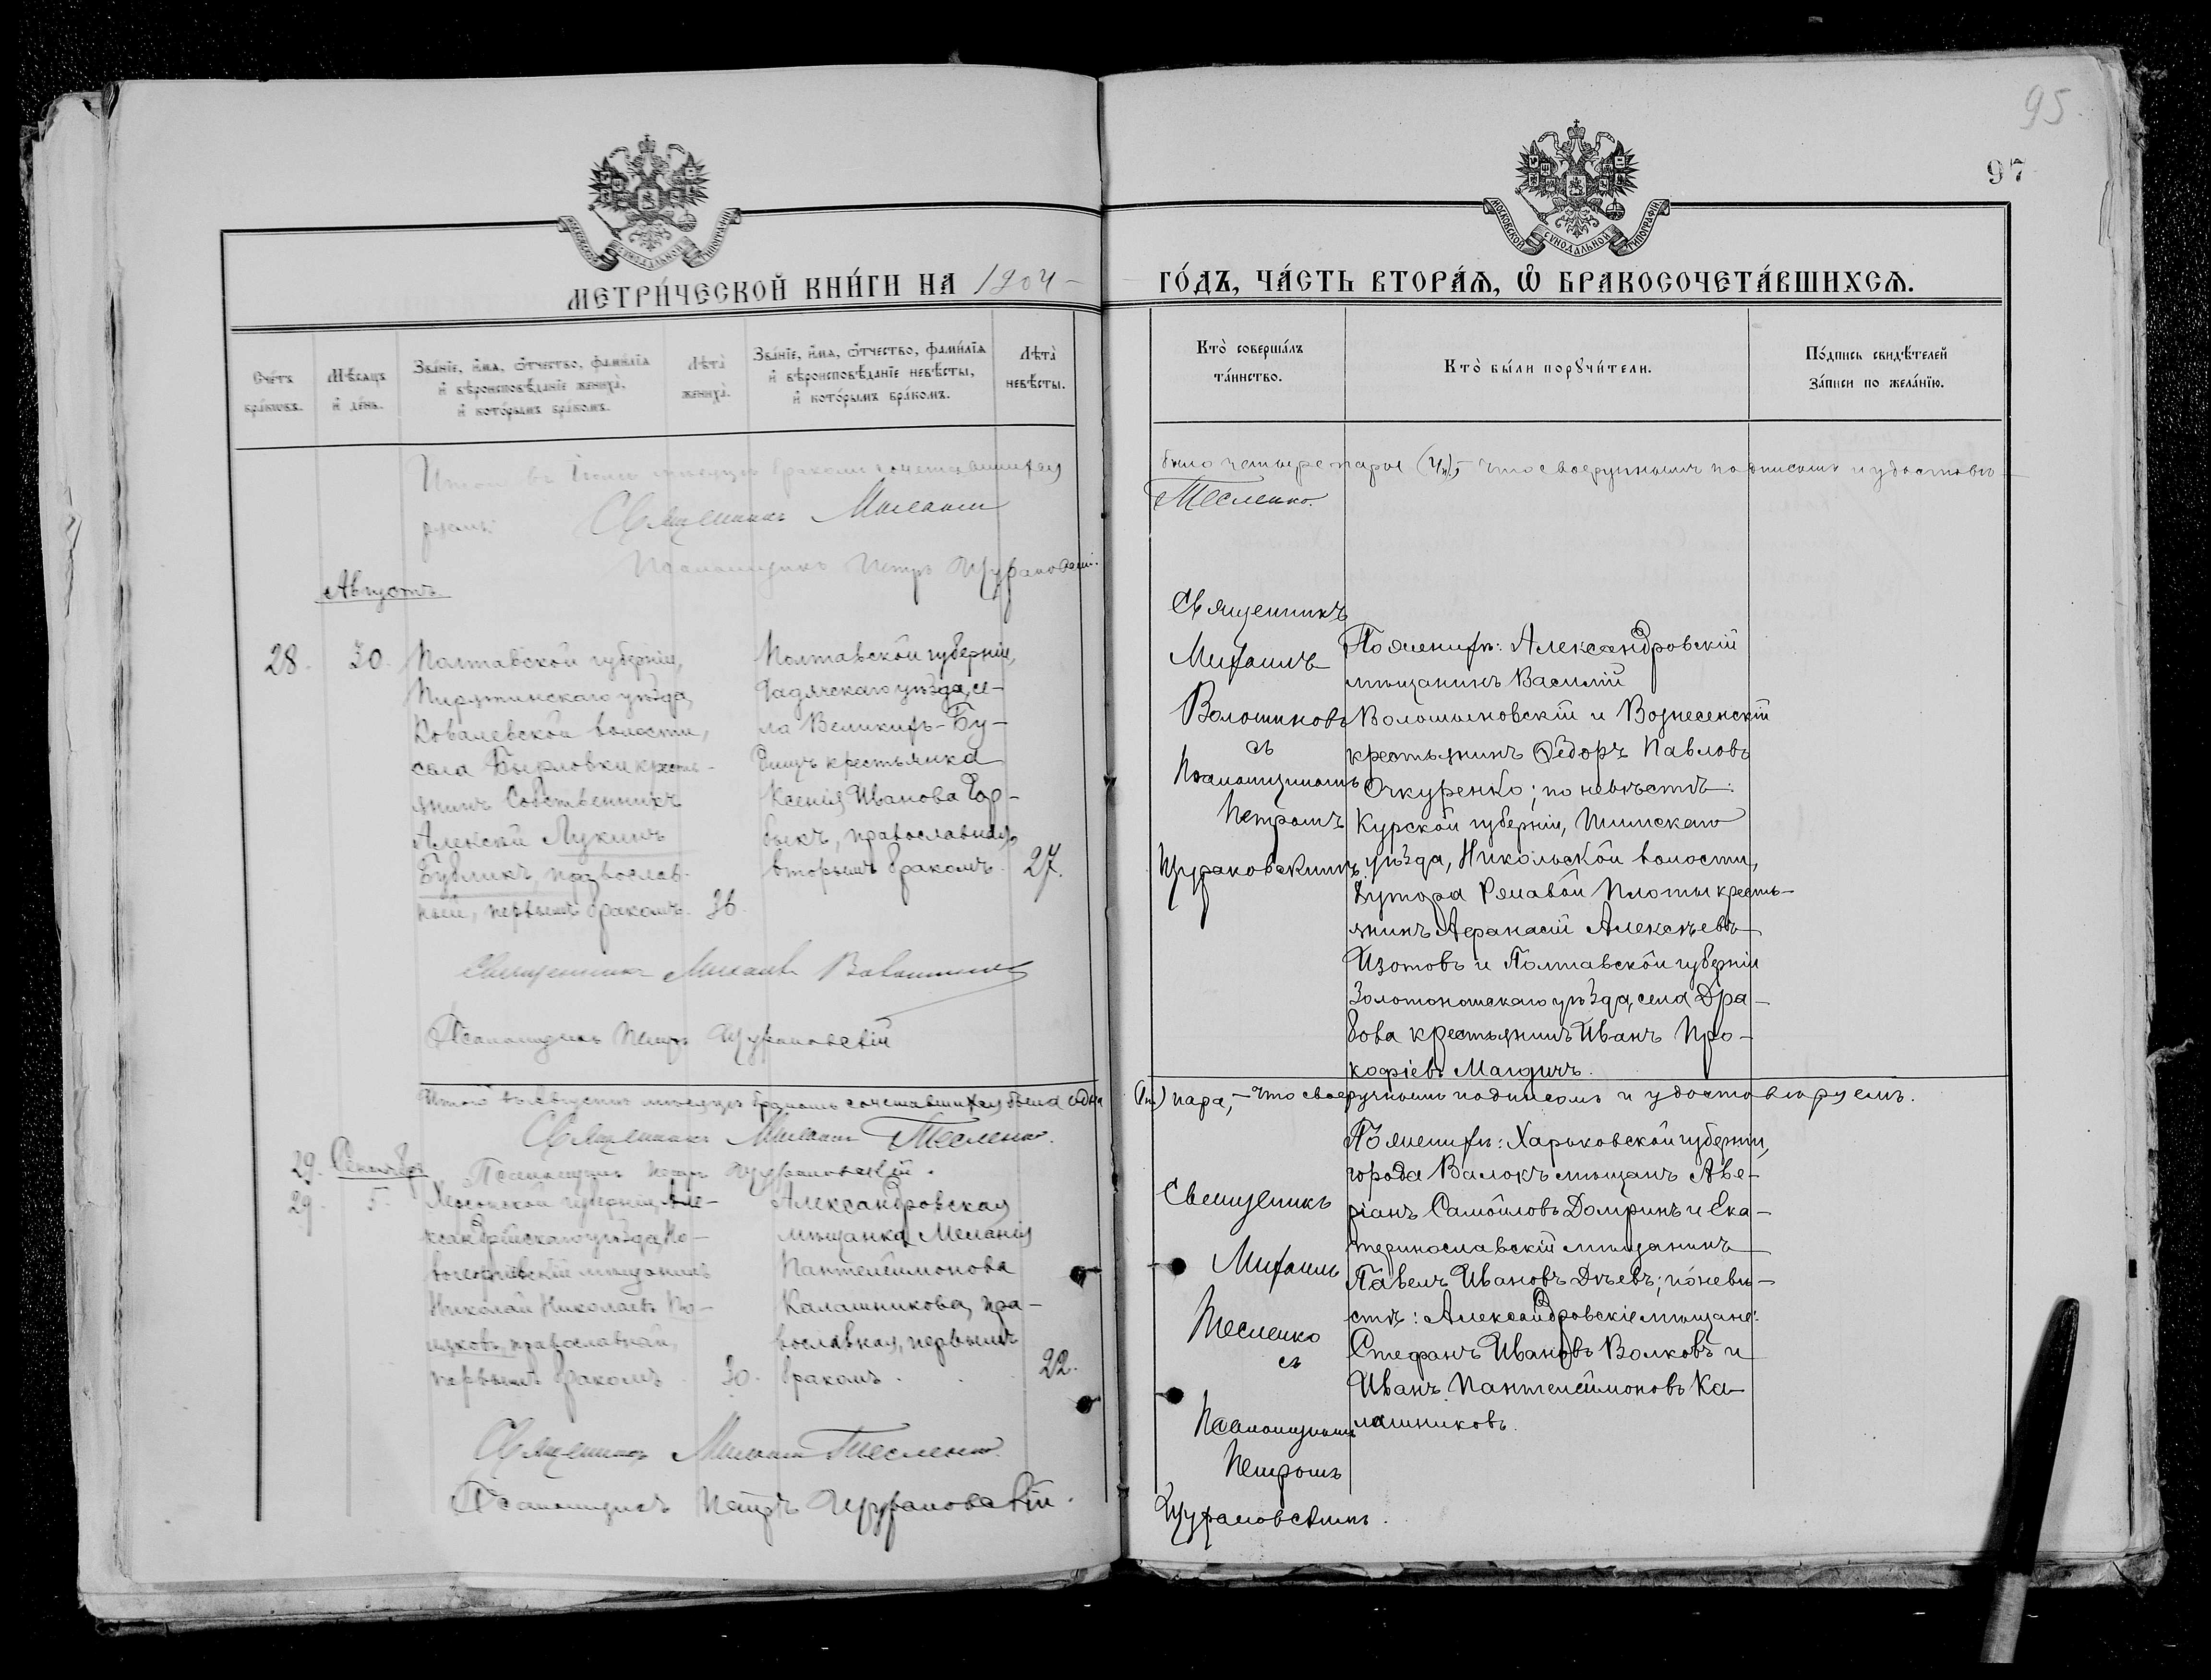 95
97
МОСКОВСКОЙ СѴНОДАЛЬНОЙ ТИПОГРАФІИ
МЕТРИ́ЧЕСКОЙ КНИ́ГИ НА 1904
ГО́ДЪ, ЧА́СТЬ ВТОРА́Ѧ, Ѽ БРАКОСОЧЕТА́ВШИХСѦ.
Сче́тъ
бра́ковъ.
Мѣ́сѧцъ
и҆ де́нь.
Зва́нїе, и҆́мѧ, ѻ҆́тчество, фами́лїѧ
и҆ вѣроисповѣ́данїе жениха̀,
и҆ кото́рымъ бра́комъ.
Лѣта̀
жениха̀.
Зва́нїе, и҆́мѧ, ѻ҆́тчество, фами́лїѧ
и҆ вѣроисповѣ́данїе невѣ́сты,
и҆ кото́рымъ бра́комъ.
Лѣта̀
невѣ́сты.
Кто̀ соверша́лъ
та́инство.
Кто̀ бы́ли порꙋчи́тели.
По́дпись свидѣ́телей
за́писи по жела́нїю.
Итого въ мѣсяцѣ бракомъ сочетавшихся
было четыре пары что своеручнымъ подписомъ и удостовѣ-
ряемъ:
Священникъ Михаилъ
Тесленко.
Псаломщикъ Петръ
Августъ
28. 30.
Полтавской губерніи,
Пирятинскаго уѣзда,
Ковалевской волости,
села Бырловки кресть-
янинъ собственникъ
Алексѣй Лукинъ
Бубликъ, православ-
ный, первымъ бракомъ. 36.
Полтавской губерніи,
Гадячскаго уѣзда, се-
ла Великихъ-Бу-
дищъ крестьянка
Ксенія Иванова Гор-
быкъ, православная,
вторымъ бракомъ. 27.
Священникъ
Михаилъ
Волошиновъ
съ
Псаломщикомъ
Петромъ
По женихѣ: Александровскій
мѣщанинъ Василій
Волошиновскій и Вознесенскій
крестьянинъ Ѳедоръ Павловъ
Очкуренко; по невѣстѣ:
Курской губерніи, Тимскаго
уѣзда, Никольской волости,
Хутора Плоты кресть-
янинъ Афанасій Алексѣевъ
Изотовъ и Полтавской губерніи
Золотоношскаго уѣзда, села Дра-
бова крестьянинъ Иванъ Про-
кофіевъ
Священникъ Михаилъ Волошиновъ
Псаломщикъ Петръ
Итого въ Августѣ мѣсяцѣ бракомъ сочетавшихся была одна
пара, - что своеручнымъ подписомъ и удостовѣряемъ.
Священникъ Михаилъ Тесленко.
Псаломщикъ Петръ
29. Сентябрь
29. 5.
Херсонской губерніи Але-
ксандрійскаго уѣзда, Но-
вогеоргіевскій мѣщанинъ
Николай Николаевъ По-
ляковъ, православный,
первымъ бракомъ 30.
Александровская
мѣщанка Меланія
Пантелеймонова
Калашникова, пра-
вославная, первымъ
бракомъ. 22.
Священникъ
Михаилъ
Тесленко
съ
Псаломщикомъ
Петромъ
По женихѣ: Харьковской губерніи,
города Валокъ мѣщанъ Аве-
ріанъ Самойловъ Домринъ и Ека-
теринославскій мѣщанинъ
Павелъ Ивановъ Дѣевъ; по невѣ-
стѣ: Александровскіе мѣщане:
Стефанъ Ивановъ Волковъ и
Иванъ Пантелеймоновъ Ка-
лашниковъ.
Священникъ Михаилъ Тесленко.
Псаломщикъ Петръ